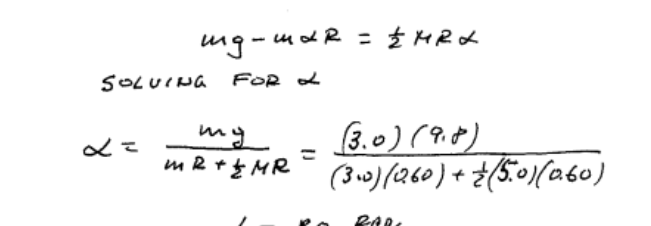 mg - mαR = ½ MRα
SOLVING FOR α
α = mg / (mR + ½ MR) = (3.0)(9.8) / ((3.0)(0.60) + ½(5.0)(0.60))